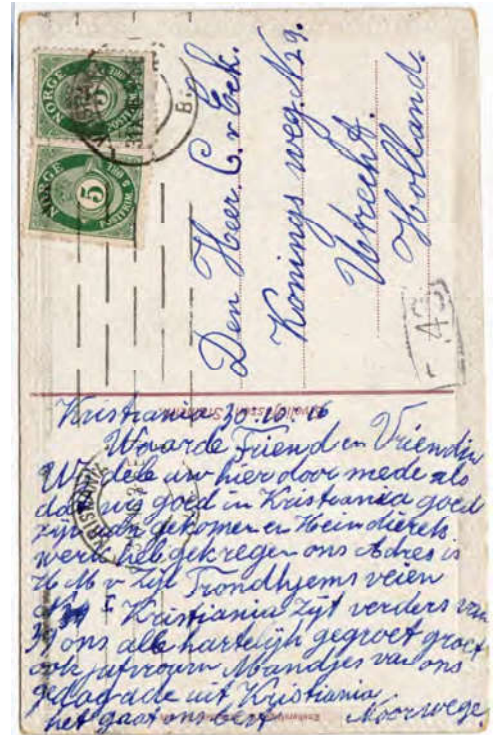 NORGE
5
NORGE
5
B.
Den Heer. C. v. Eck.
Konings weg. N 29.
Utrecht.
Holland.
A 3
Kristiania 30.10.16
Waarde Friend en Vriendin
Wÿ dele uw hier door mede als
dat wÿ goed in Kristiania goed
zÿn aan gekomen en Hein dierek
werk heb gekregen ons Adres is
H. M v Zÿl Trondhjems veien
N 39 I Kristiania Zÿt verders van
39 ons alle hartelÿk gegroet groet
ook jufvrouw Mandjes van ons
gedag ade uit Kristiania
het gaat ons best Noorwege.